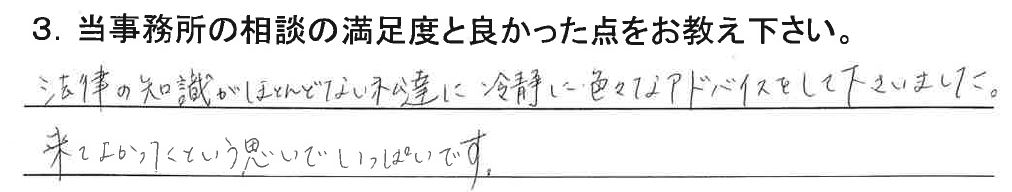 3. 当事務所の相談の満足度と良かった点をお教え下さい。
法律の知識がほとんどない私達に冷静に色々なアドバイスをして下さいました。
来てよかったという思いでいっぱいです。